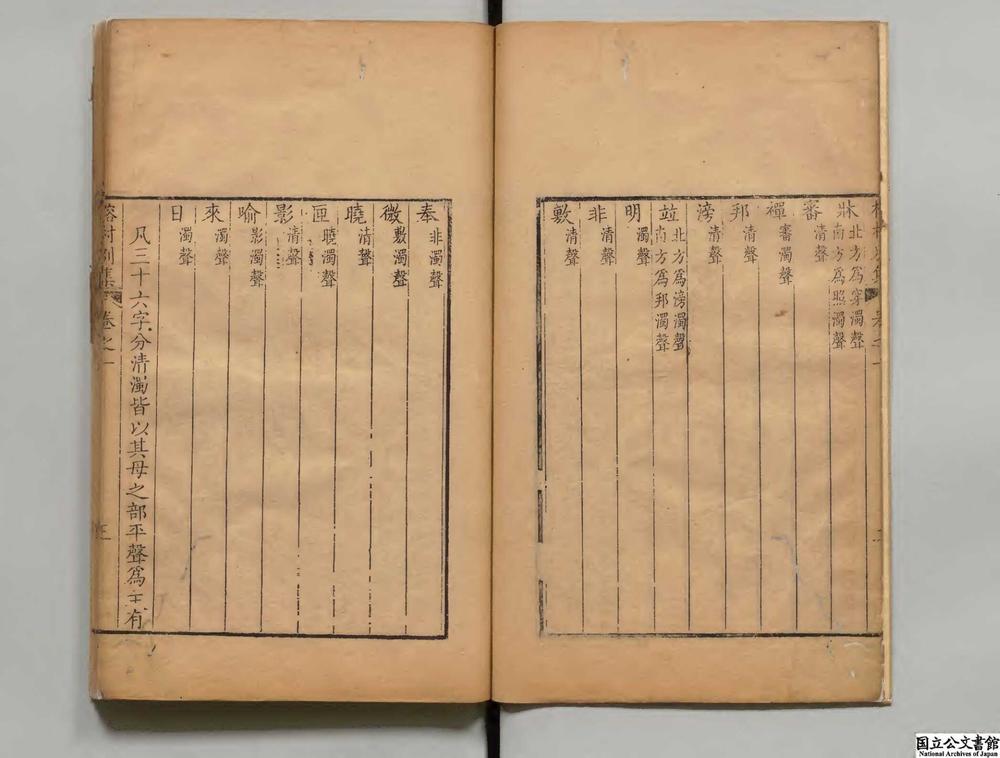 牀 北方為穿濁聲 南方為照濁聲
審 清聲
禪 審濁聲
邦 清聲
滂 清聲
竝 北方為滂濁聲 南方為邦濁聲
明 濁聲
非 清聲
敷 清聲
奉 非濁聲
微 敷濁聲
曉 清聲
匣 曉濁聲
影 清聲
喻 影濁聲
來 濁聲
日 濁聲
凡三十六字分清濁皆以其母之部平聲為主有
榕村別集 卷之一
三
国立公文書館
National Archives of Japan